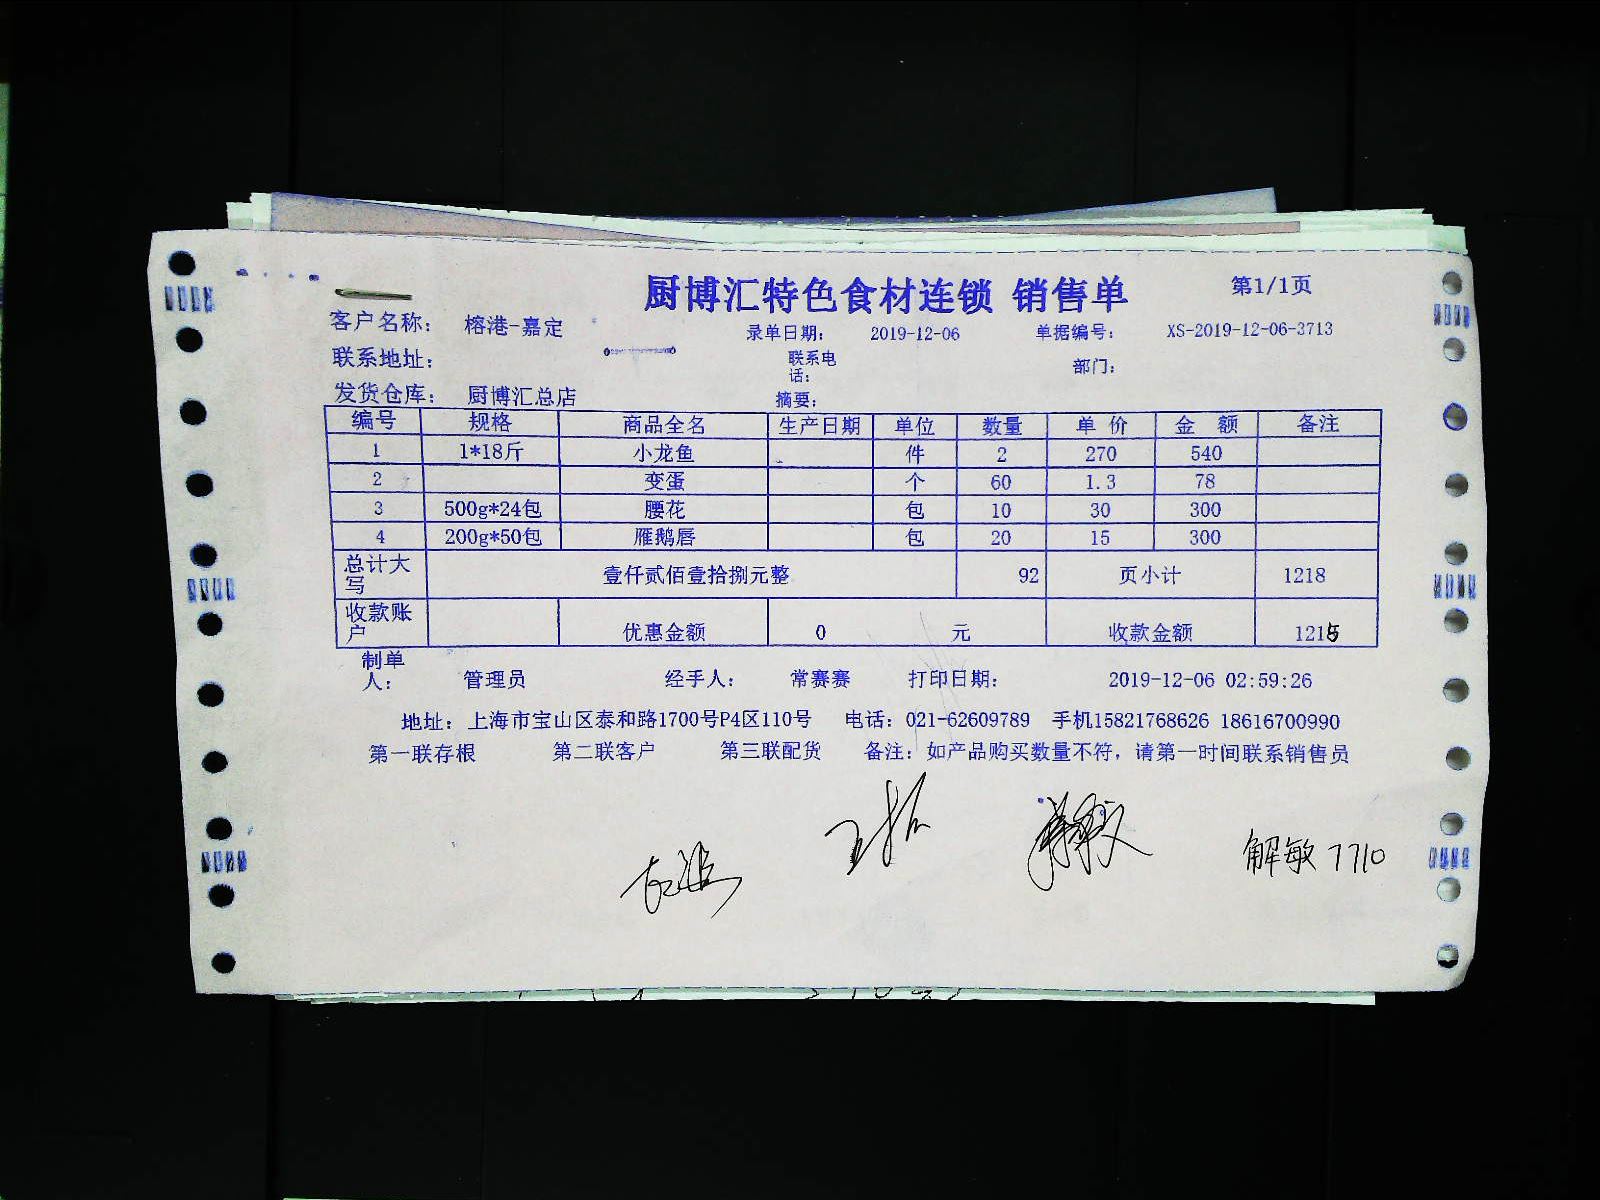 厨博汇特色食材连锁 销售单 第1/1页
客户名称： 榕港-嘉定 录单日期： 2019-12-06 单据编号： XS-2019-12-06-3713
联系地址： 联系电话： 部门：
发货仓库： 厨博汇总店 摘要：
编号 规格 商品全名 生产日期 单位 数量 单价 金额 备注
1 1*18斤 小龙鱼 件 2 270 540
2 变蛋 个 60 1.3 78
3 500g*24包 腰花 包 10 30 300
4 200g*50包 雁鹅唇 包 20 15 300
总计大写 壹仟贰佰壹拾捌元整 92 页小计 1218
收款账户 优惠金额 0 元 收款金额 1215
制单人： 管理员 经手人： 常赛赛 打印日期： 2019-12-06 02:59:26
地址：上海市宝山区泰和路1700号P4区110号 电话：021-62609789 手机15821768626 18616700990
第一联存根 第二联客户 第三联配货 备注：如产品购买数量不符，请第一时间联系销售员
解敏 7710